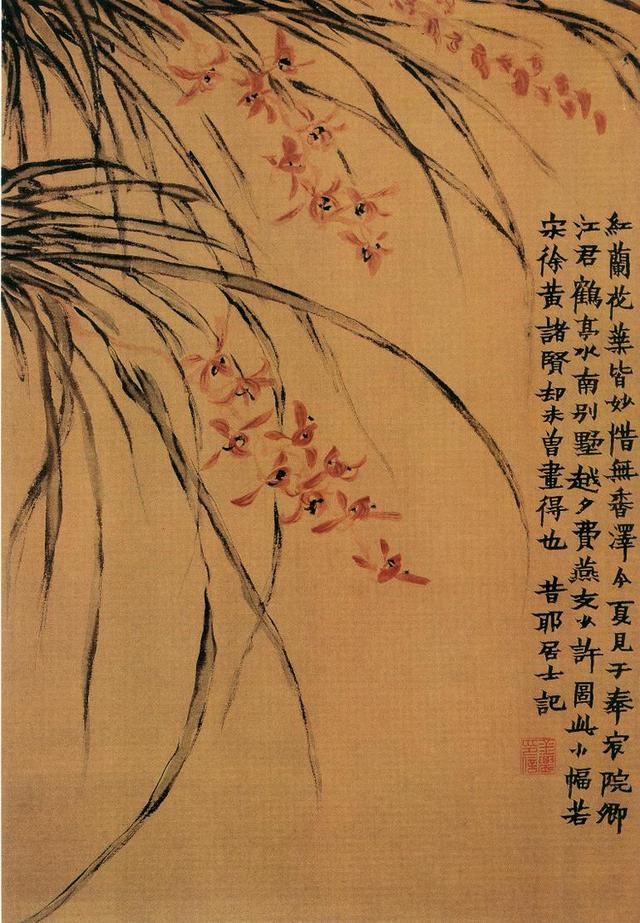 紅蘭花葉皆妙惜無香澤今夏見于奉宸院卿
江君鶴亭水南别墅越夕費燕支少許圖此小幅若
宋徐黃諸賢却未曾畫得也　昔耶居士記